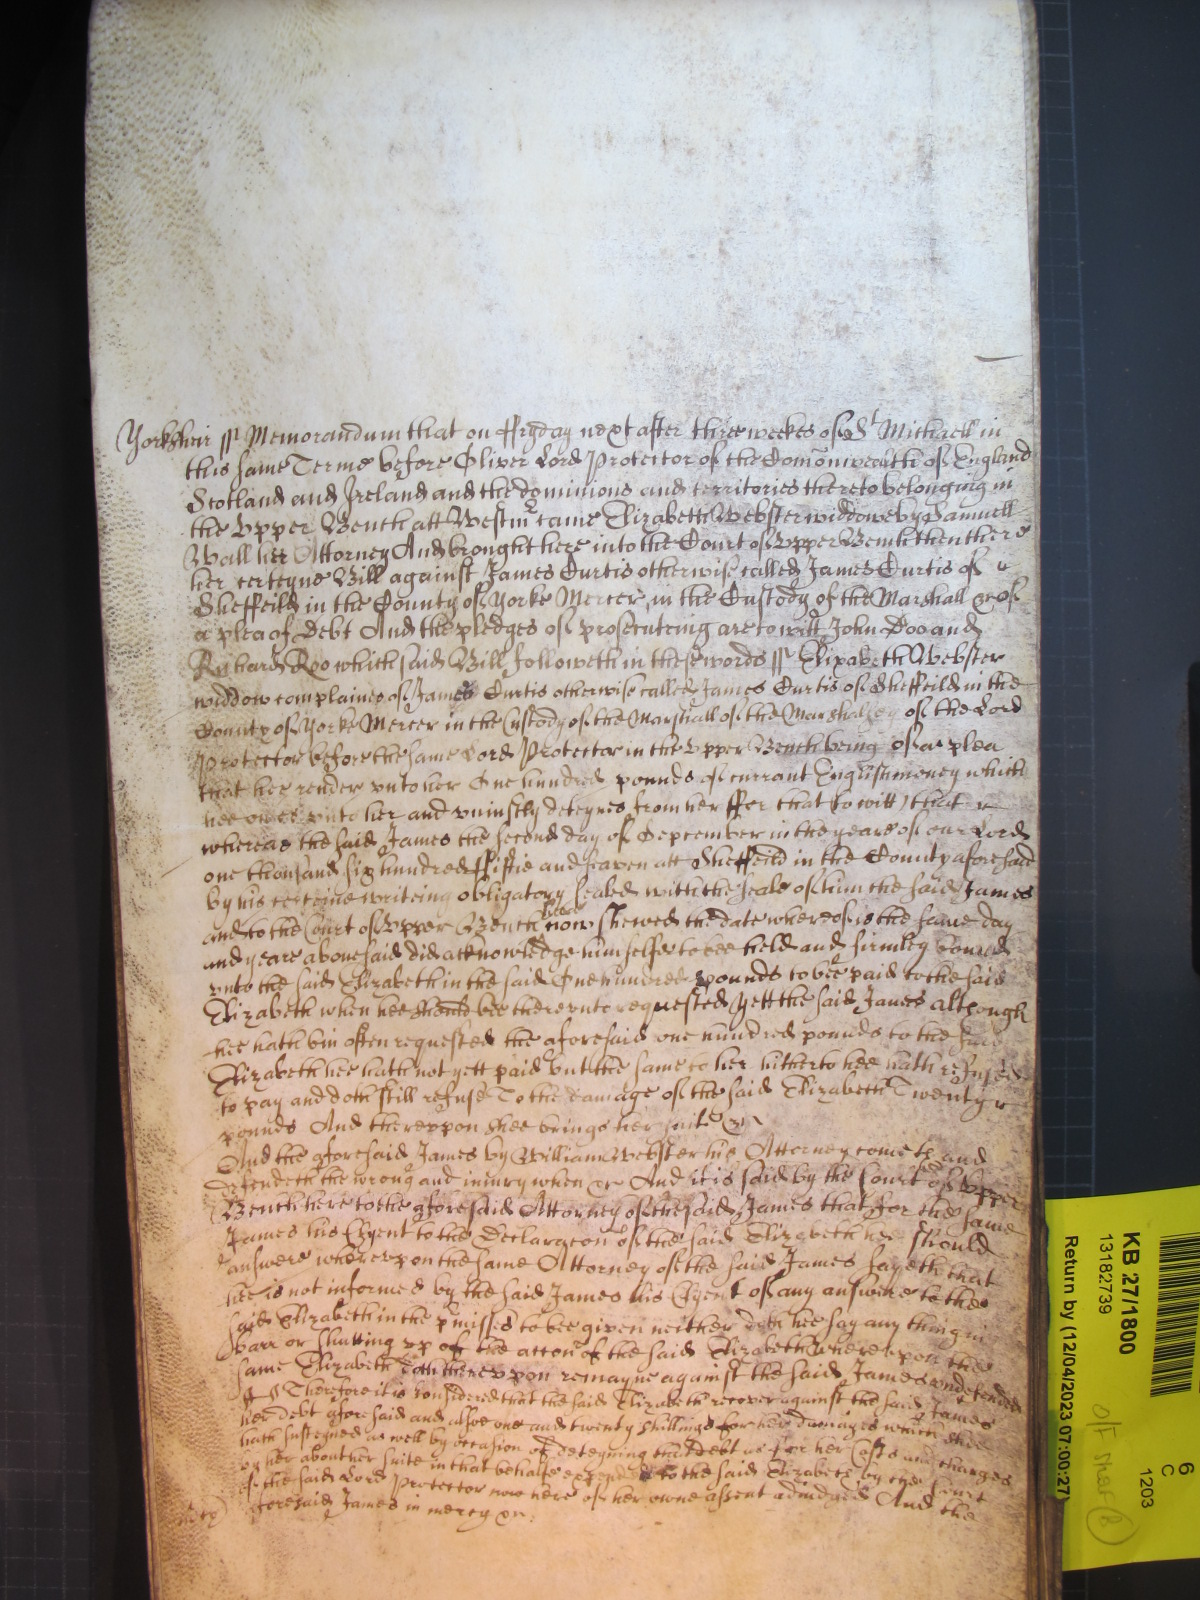 Yorksheir ss Memorandum that on ffryday next after three weekes of St Michaell in
this same Terme before Oliver Lord Protector of the Comonwealth of England
Scotland and Ireland and the dominions and territories thereto belonging in
the Upper Bench att Westmr came Elizabeth Webster widdowe by Samuell
Wall her Attorney And brought here into the Court of Upper Bench then there
her certeyne Bill against James Curtis otherwise called James Curtis of
Sheffeild in the County of Yorke Mercer in the Custody of the Marshall &c of
a plea of Debt And the pledges of prosecuteing are to witt John Doo and
Richard Roo which said Bill followeth in these words ss Elizabeth Webster
widdow complaines of James Curtis otherwise called James Curtis of Sheffeild in the
County of Yorke Mercer in the Custody of the Marshall of the Marshalsey of the Lord
Protector before the same Lord Protector in the Upper Bench being of a plea
that hee render unto her One hundred pounds of currant English money which
hee owes unto her and uniustly deteynes from her ffor that to witt that
whereas the said James the second day of September in the yeare of our Lord
one thousand six hundred ffiftie and seaven att Sheffeild in the County aforesaid
by his certeine writeing obligatory sealed with the seale of him the said James
and to the Court of Upper Bench here now shewed the date whereof is the same day
and yeare abovesaid did acknowledge himselfe to bee held and firmley bound
unto the said Elizabeth in the said One hundred pounds to bee paid to the said
Elizabeth when hee should bee thereunto requested Yett the said James although
hee hath bin often requested the aforesaid one hundred pounds to the said
Elizabeth hee hath not yett paid but the same to her hitherto hee hath refused
to pay and doth still refuse To the damage of the said Elizabeth Twenty
pounds And thereupon shee brings her suite &c
And the aforesaid James by William Webster his Attorney cometh and
defendeth the wrong and iniury when &c And it is said by the Court of Upper
Bench here to the aforesaid Attorney of the said James that for the same
James his Clyent to the Declaracon of the said Elizabeth hee should
answere whereupon the same Attorney of the said James sayeth that
hee is not informed by the said James his Clyent of any answere to the
said Elizabeth in the pmisses to bee given neither doth hee say any thing in
barr or shutting up of the accon of the said Elizabeth whereupon the
same Elizabeth doth thereupon remayne against the said James undefended
&c Therefore it is considered that the said Elizabeth recover against the said James
her debt aforesaid and alsoe one and twenty shillings for her damages which shee
hath susteyned as well by occasion of deteyning that debt as for her Costs and charges
by her about her suite in that behalfe expended to the said Elizabeth by the Court
of the said Lord Protector now here of her owne assent adiudged And the
foresaid James in mercy &c
KB 27/1800
13182739
Return by (12/04/2023 07:00:27)
6
C
1203